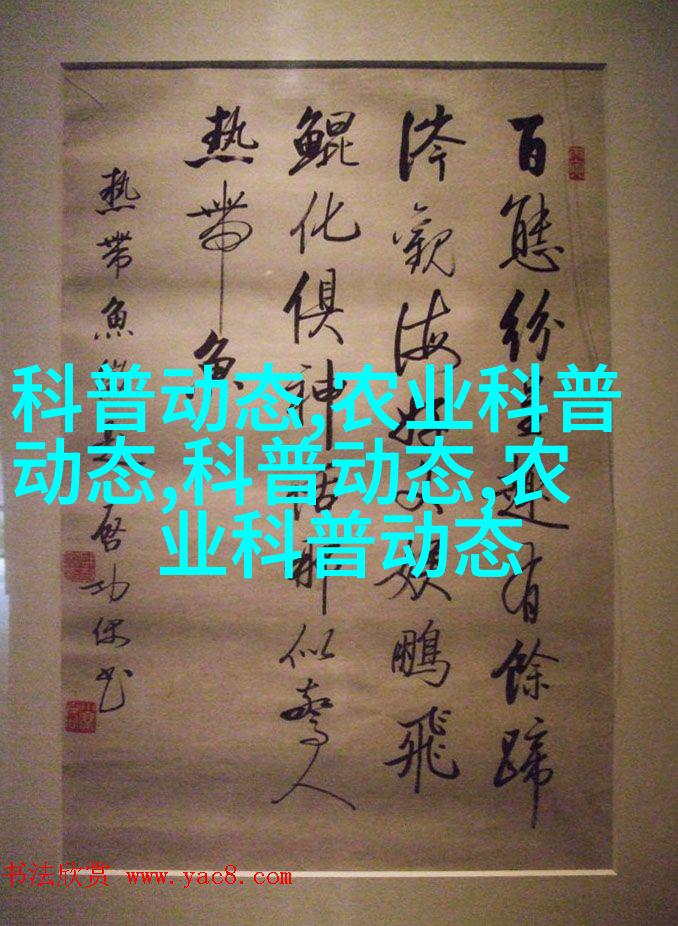 百態紛呈趣有餘蹄
涔觀海娱鵬飛
鯤化俱神话那似驚人
熱帶魚
熱帶魚 啓功
科普动态,农业科普
动态,科普动态,农
业科普动态
书法欣赏 www.yac8.com